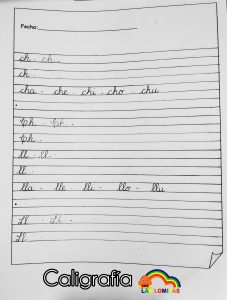 Fecha:
ch - ch -
ch
cha - che - chi - cho - chu
Ch - Ch -
Ch -
ll - ll -
ll -
lla - lle - lli - llo - llu
Ll - Ll -
Ll -
Caligrafía
LAS LOMITAS